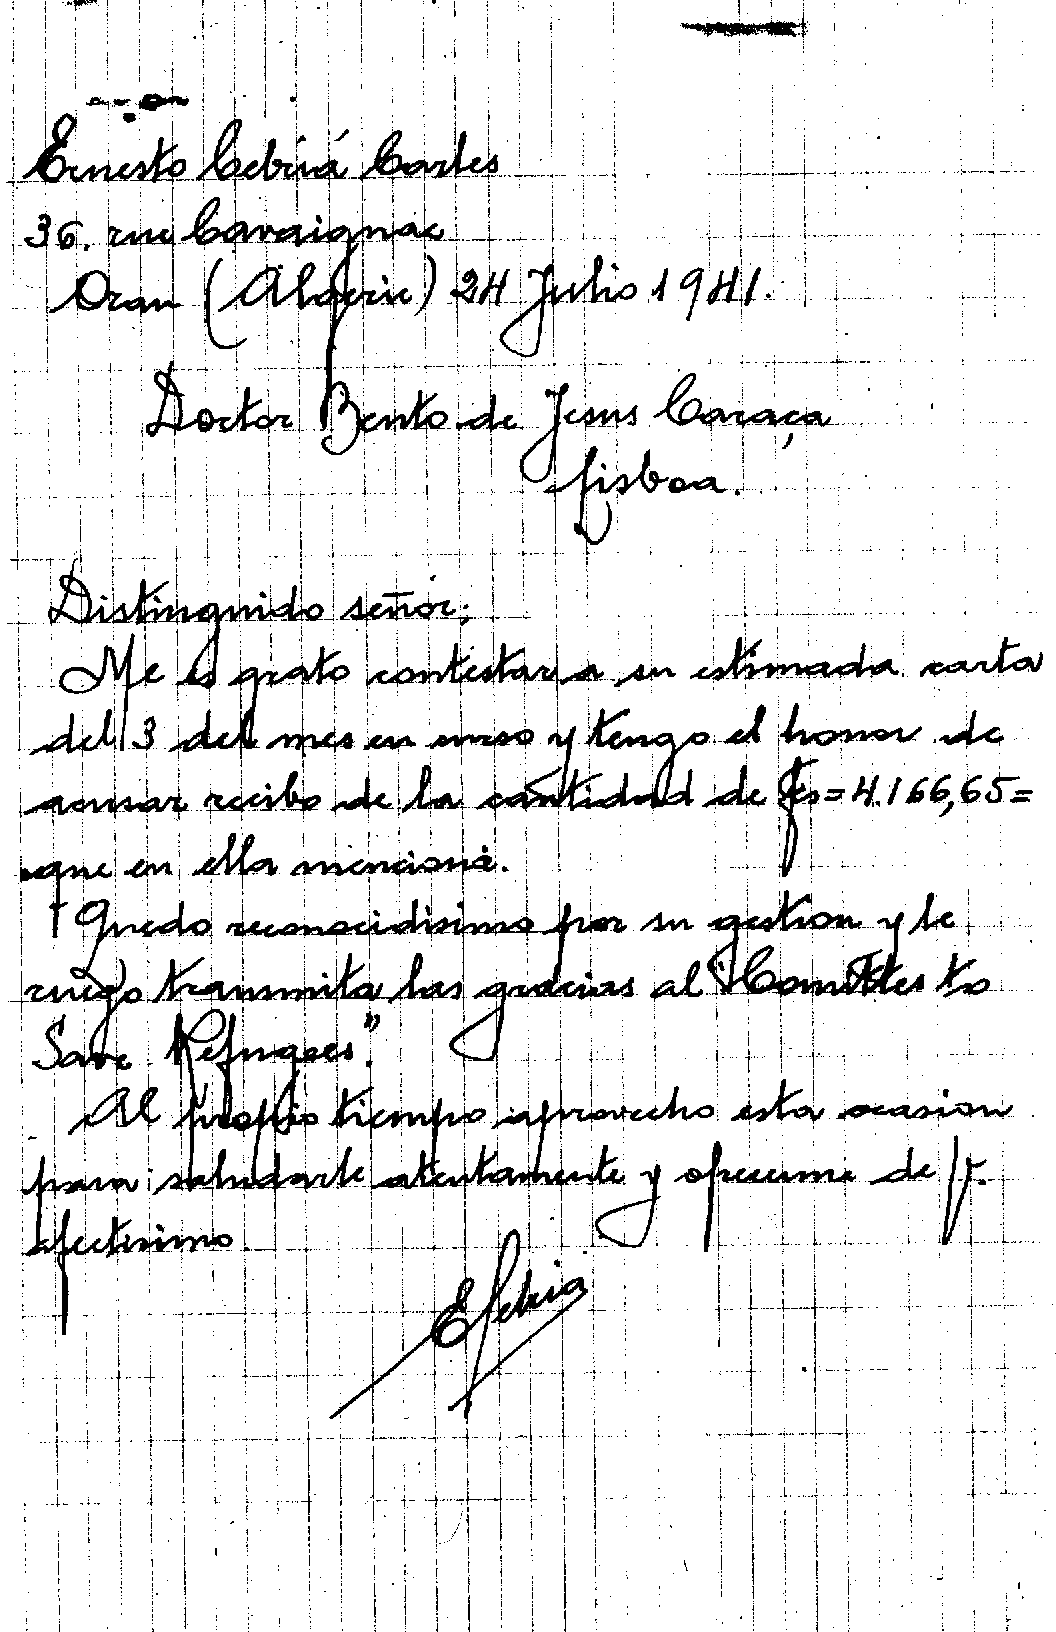 Ernesto Cebriá Cortes
36. rue Cavaignac
Oran (Algerie) 24 Julio 1941.
Doctor Bento de Jesus Caraça
Lisboa.
Distinguido señor;
Me es grato contestar a su estimada carta
del 3 del mes en curso y tengo el honor de
acusar recibo de la cantidad de frs=4.166,65=
que en ella menciona.
Quedo reconocidisimo por su gestion y le
ruego transmita las gracias al "Comittes to
Save Refugees".
Al propio tiempo aprovecho esta ocasion
para saludarle atentamente y ofrecerme de V.
afectisimo
ECebria